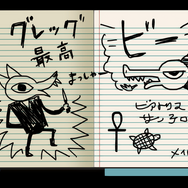 グレッグ
最高
よっしゃー
ビー
ビアトリス
サンテロ
メイ